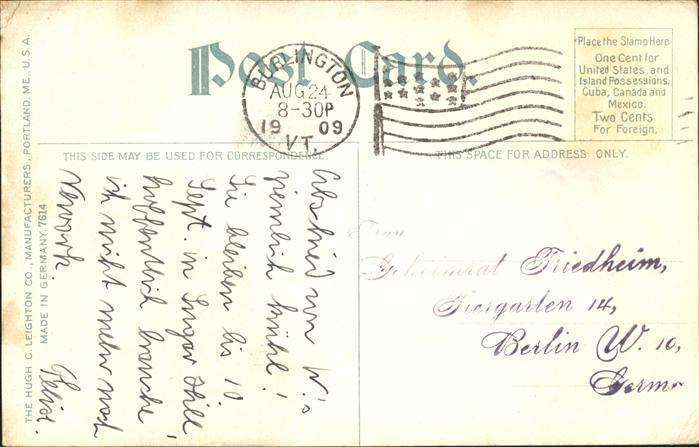 Post Card.
BURLINGTON
AUG 24
8-30P
1909
VT.
Place the Stamp Here
One Cent for
United States, and
Island Possessions,
Cuba, Canada and
Mexico.
Two Cents
For Foreign.
THIS SIDE MAY BE USED FOR CORRESPONDENCE.
THIS SPACE FOR ADDRESS ONLY.
THE HUGH C. LEIGHTON CO., MANUFACTURERS, PORTLAND, ME., U.S.A.
MADE IN GERMANY. 7614
Abschied von W.'s
ziemlich kühl!
Sie bleiben bis 10.
Sept. in Sugar Hill
hoffentlich brauche
ich nicht mehr nach
Newark
Felix.
Frau
Geheimrat Friedheim,
Tiergarten 14,
Berlin W. 10,
Germ